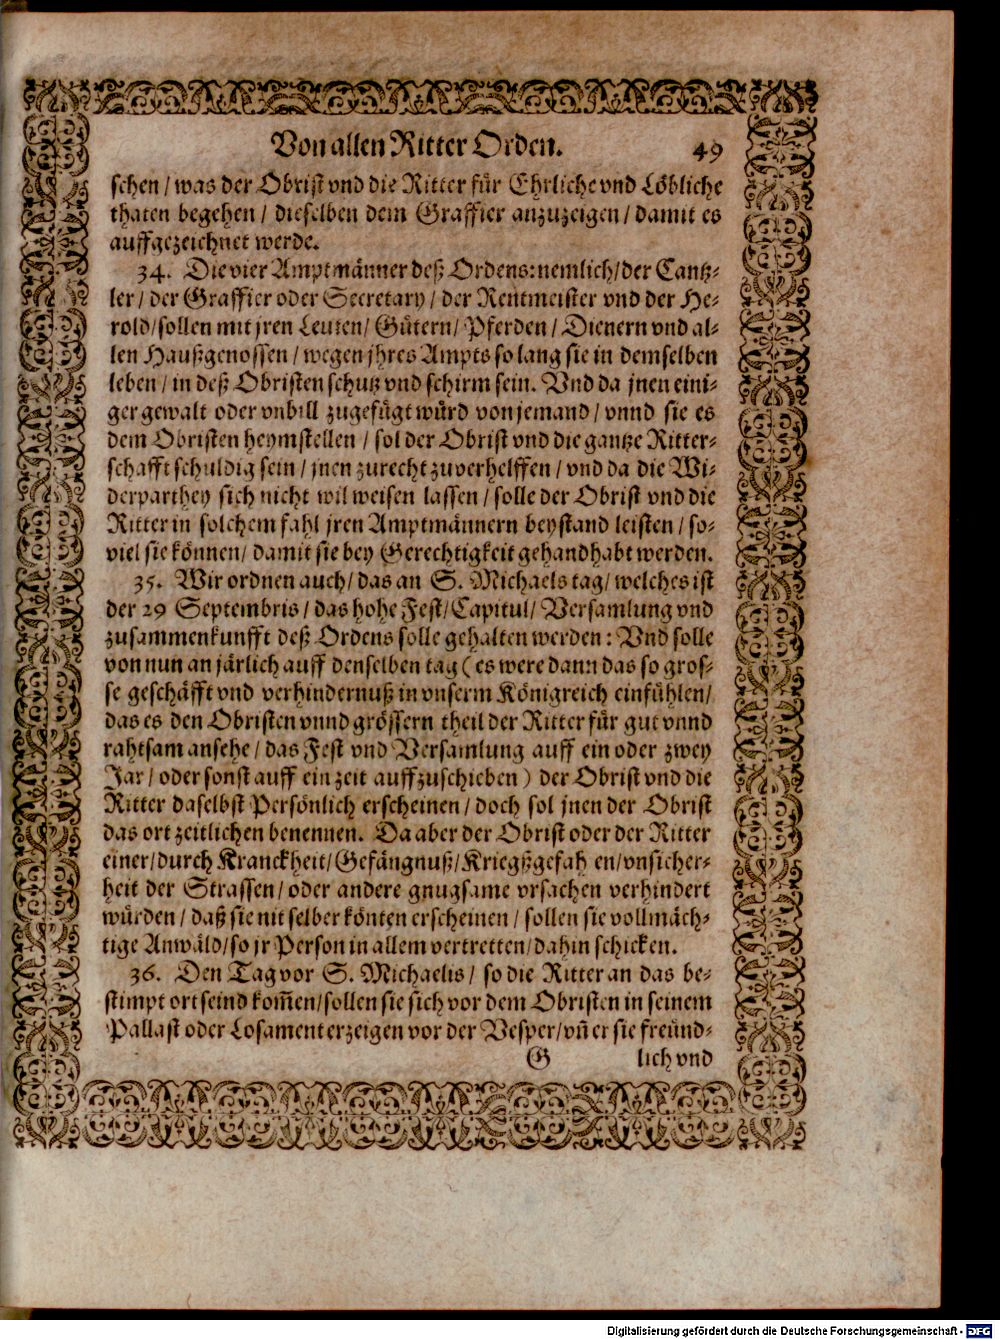 Von allen Ritter Orden. 49
schen / was der Obrist vnd die Ritter für Ehrliche vnd Löbliche
thaten begehen / dieselben dem Graffier anzuzeigen / damit es
auffgezeichnet werde.
34. Die vier Amptmänner deß Ordens: nemlich / der Cantz-
ler / der Graffier oder Secretary / der Rentmeister vnd der He-
rold / sollen mit jren Leuten / Gütern / Pferden / Dienern vnd al-
len Haußgenossen / wegen jhres Ampts so lang sie in demselben
leben / in deß Obristen schutz vnd schirm sein. Vnd da jnen eini-
ger gewalt oder vnbill zugefügt würd von jemand / vnnd sie es
dem Obristen heymstellen / sol der Obrist vnd die gantze Ritter-
schafft schuldig sein / jnen zurecht zuverhelffen / vnd da die Wi-
derparthey sich nicht wil weisen lassen / solle der Obrist vnd die
Ritter in solchem fahl jren Amptmännern beystand leisten / so-
viel sie können / damit sie bey Gerechtigkeit gehandhabt werden.
35. Wir ordnen auch / das an S. Michaels tag / welches ist
der 29 Septembris / das hohe Fest / Capitul / Versamlung vnd
zusammenkunfft deß Ordens solle gehalten werden: Vnd solle
von nun an järlich auff denselben tag ( es were dann das so gros-
se geschäfft vnd verhindernuß in vnserm Königreich einfühlen /
das es den Obristen vnnd grössern theil der Ritter für gut vnnd
rahtsam ansehe / das Fest vnd Versamlung auff ein oder zwey
Jar / oder sonst auff ein zeit auffzuschieben ) der Obrist vnd die
Ritter daselbst Persönlich erscheinen / doch sol jnen der Obrist
das ort zeitlichen benennen. Da aber der Obrist oder der Ritter
einer / durch Kranckheit / Gefängnuß / Kriegßgefah en / vnsicher-
heit der Strassen / oder andere gnugsame vrsachen verhindert
würden / daß sie nit selber könten erscheinen / sollen sie vollmäch-
tige Anwäld / so jr Person in allem vertretten / dahin schicken.
36. Den Tag vor S. Michaelis / so die Ritter an das be-
stimpt ort seind kom̄en / sollen sie sich vor dem Obristen in seinem
Pallast oder Losament erzeigen vor der Vesper / vn̄ er sie freünd-
G lich vnd
Digitalisierung gefördert durch die Deutsche Forschungsgemeinschaft - DFG